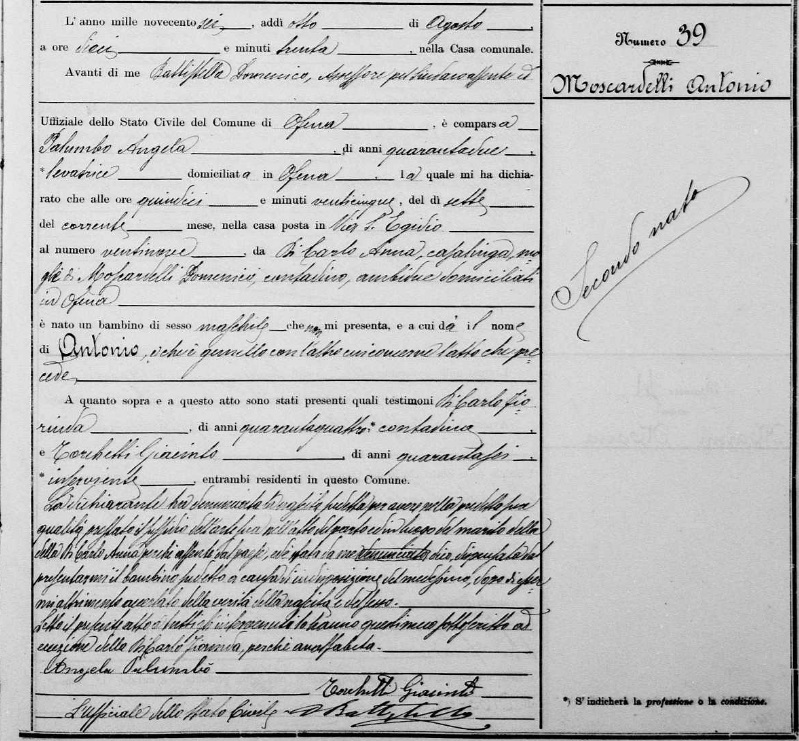 L'anno mille novecento sei, addì otto di Agosto,
a ore dieci e minuti trenta, nella Casa comunale.
Avanti di me Battistella Domenico, Assessore pel Sindaco assente ed
Uffiziale dello Stato Civile del Comune di Ofena, è comparsa
Palumbo Angela, di anni quarantadue,
*levatrice domiciliata in Ofena, la quale mi ha dichia-
rato che alle ore quindici e minuti venticinque, del dì sette
del corrente mese, nella casa posta in Via S. Egidio
al numero ventinove, da Di Carlo Anna, casalinga, mo-
glie di Moscardelli Domenico, contadino, ambidue domiciliati
in Ofena
è nato un bambino di sesso maschile che non mi presenta, e a cui dà il nome
di Antonio, e che è gemello con l'altro cui concerne l'atto che pre-
cede,
A quanto sopra e a questo atto sono stati presenti quali testimoni Di Carlo Fio-
rinda, di anni quarantaquattro, *contadina,
e Torchetti Giacinto, di anni quarantasei,
*inserviente, entrambi residenti in questo Comune.
La dichiarante ha denunciata la nascita predetta per avere nella predetta sua
qualità prestato il suffizio dell'arte sua nell'atto del parto ed in luogo del marito della
della Di Carlo Anna perchè assente dal paese, ed è stata da me dico, dispensata dal
presentarmi il bambino suddetto a causa di indisposizione del medesimo, dopo di esser-
mi altrimenti accertato della verità della nascita e del sesso.
Letto il presente atto a tutti gl'intervenuti lo hanno questi meco sottoscritto ad
eccezione della Di Carlo Fiorinda, perchè analfabeta.
Angela Palumbo
Torchetti Giacinto
L'uffiziale dello Stato Civile D Battistella
Numero 39
Moscardelli Antonio
Secondo nato
*) S'indicherà la professione o la condizione.